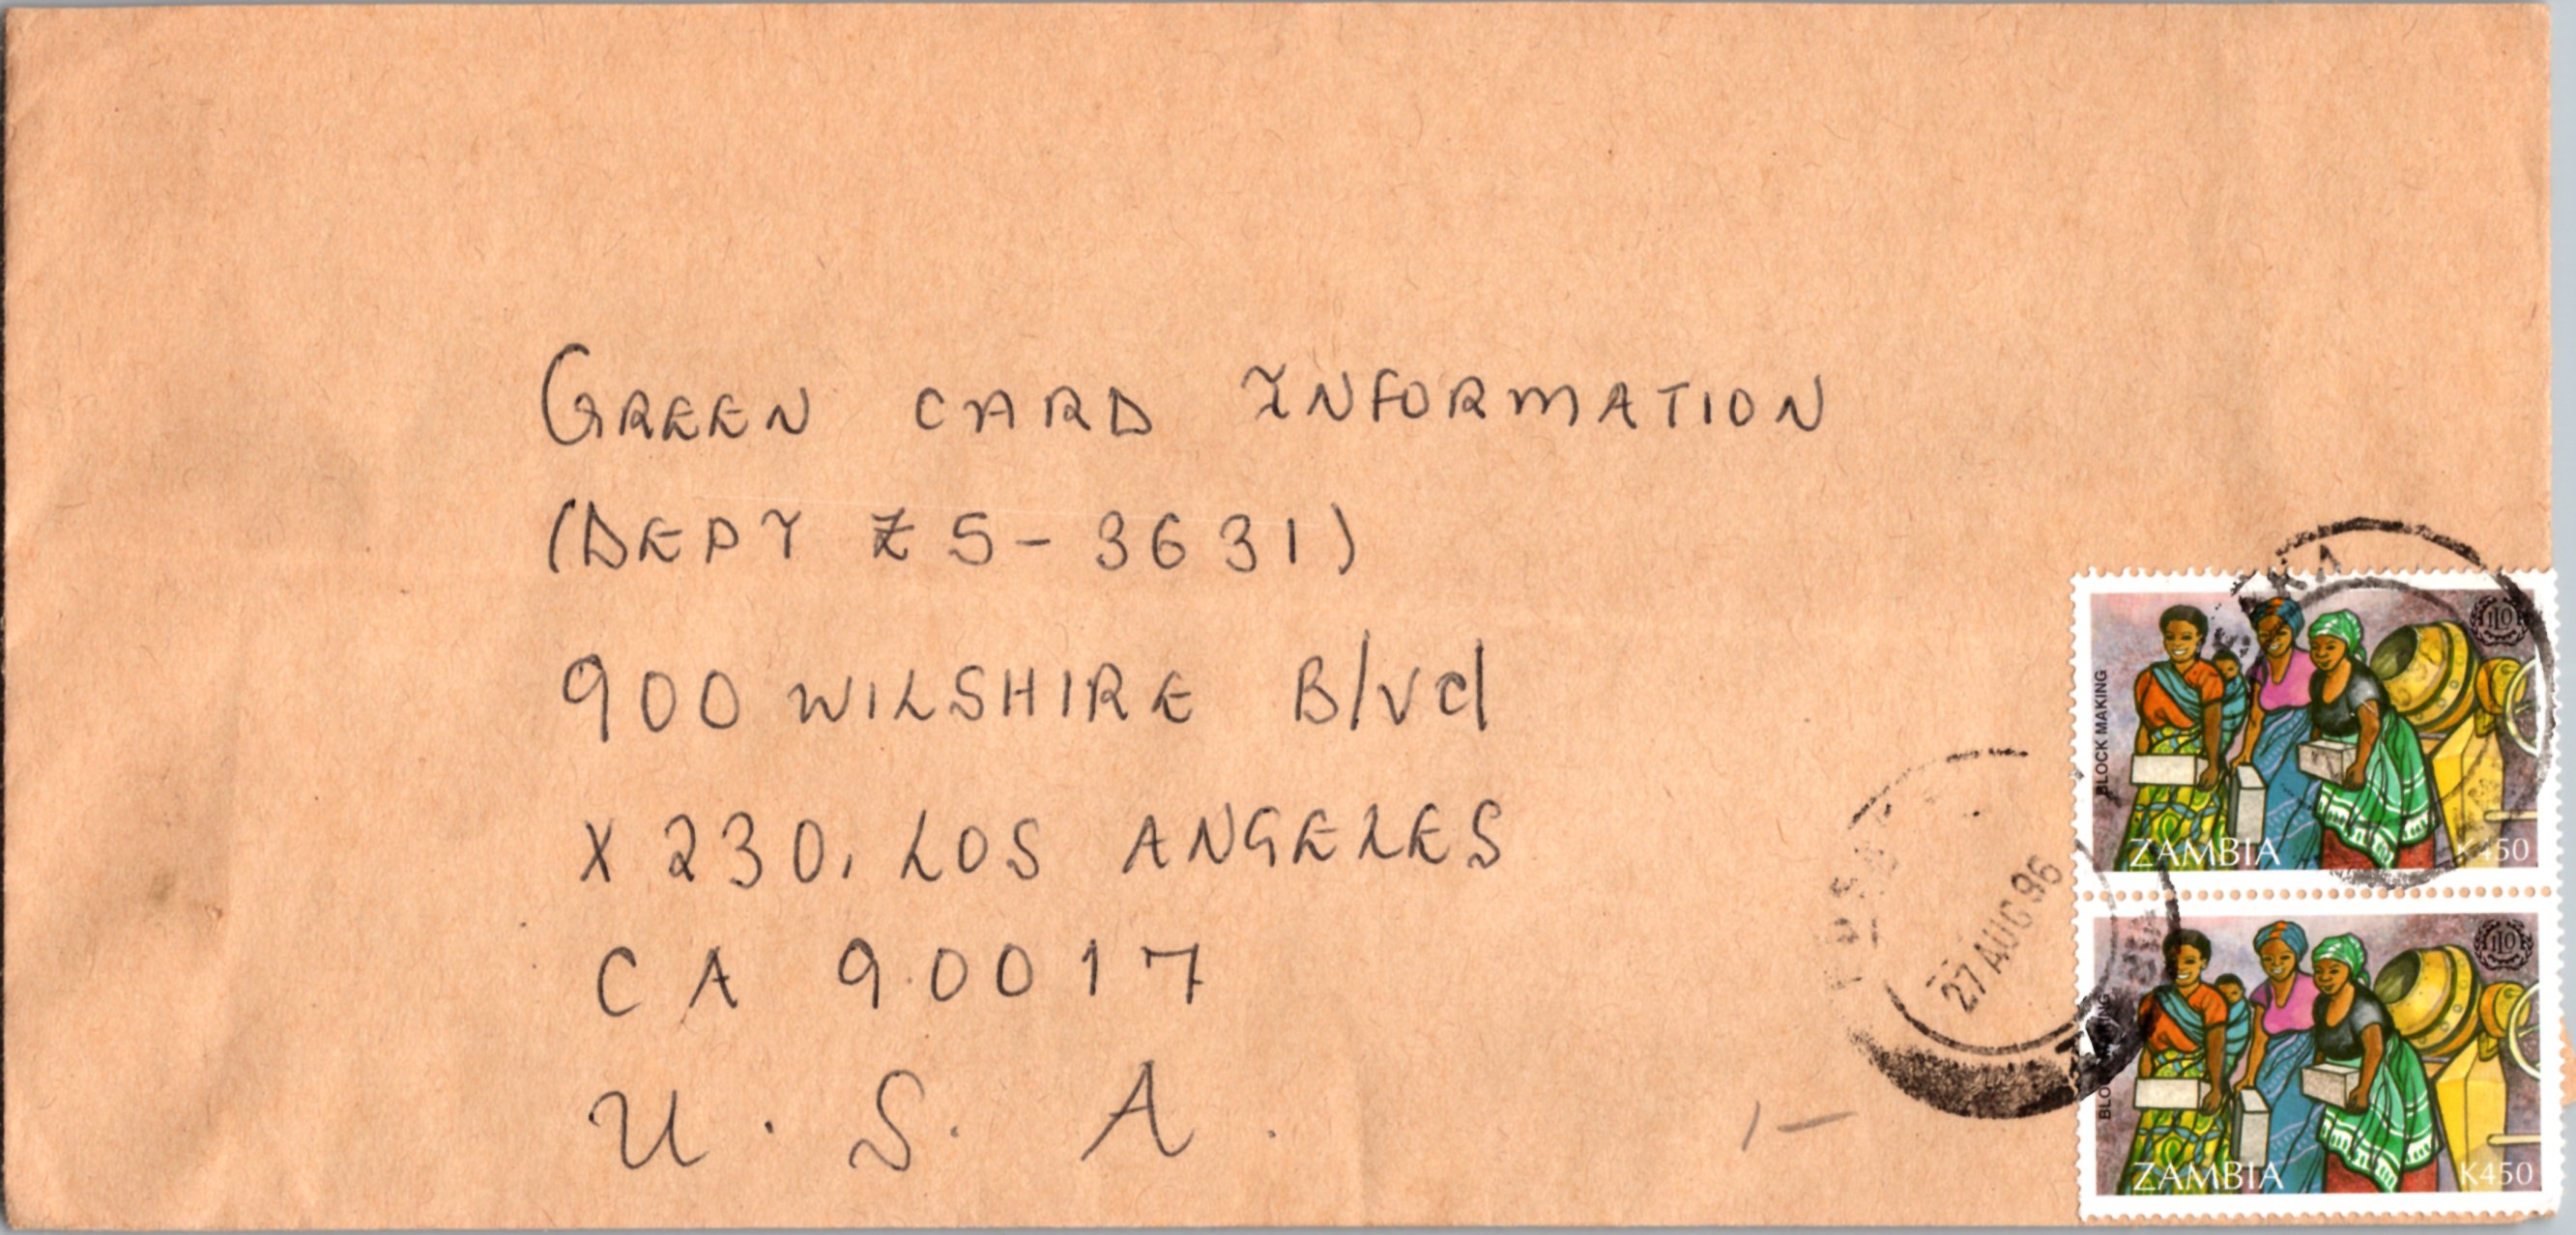 GREEN CARD INFORMATION
(DEPT Z5-3631)
900 WILSHIRE Blvd
X 230, LOS ANGELES
CA 90017
U. S. A.
27 AUG 96
BLOCK MAKING
ILO
ZAMBIA K450
ILO
ZAMBIA K450